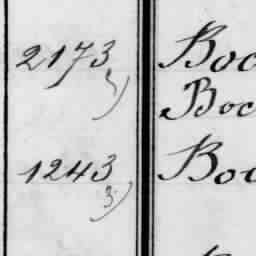 2173 Boc
Boc
1243 Boc
3)